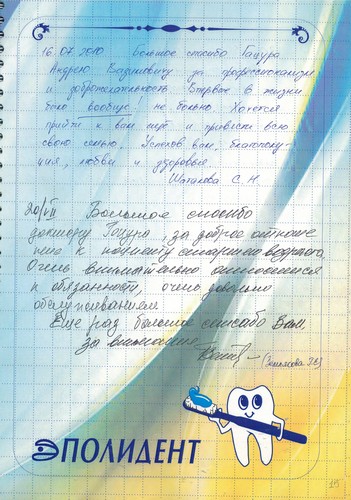 16.07.2010 Большое спасибо Гацура
Андрею Вадимовичу за профессионализм
и доброжелательность. Впервые в жизни
было вообще! не больно. Хочется
прийти к вам ещё и привести всю
свою семью. Успехов вам, благополу-
чия, любви и здоровья.
Шаталова С. Н.
20/VII Большое спасибо
доктору Гацура, за доброе отноше
ние к пациенту старшего возраста.
Очень внимательно относится
к обязанности, очень довольна
обслуживанием
Еще раз большое спасибо Вам,
за внимание
ПОЛИДЕНТ
15